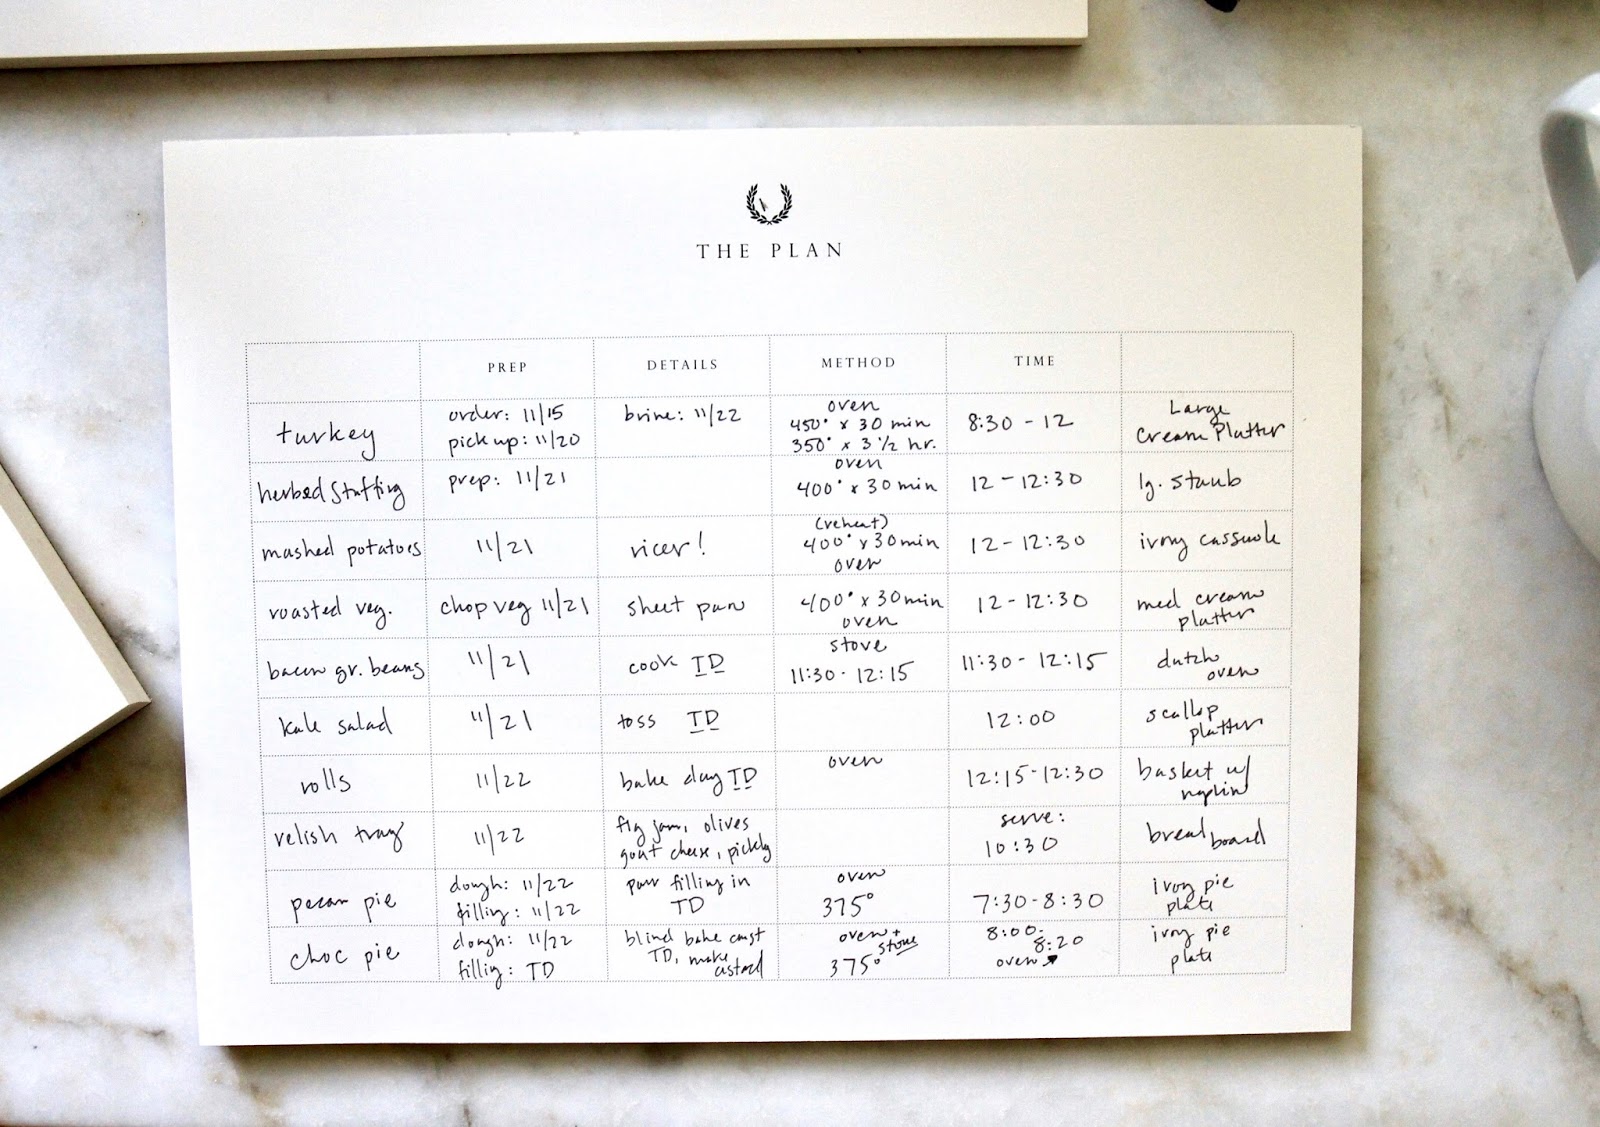 THE PLAN
PREP DETAILS METHOD TIME
turkey
order: 11/15
pick up: 11/20
brine: 11/22
oven
450° x 30 min
350° x 3 1/2 hr.
8:30 - 12
Large
Cream Platter
herbed stuffing
prep: 11/21
oven
400° x 30 min
12 - 12:30
lg. staub
mashed potatoes
11/21
ricer!
(reheat)
400° x 30 min
oven
12 - 12:30
ivory casserole
roasted veg.
chop veg 11/21
sheet pan
400° x 30 min
oven
12 - 12:30
med cream
platter
bacon gr. beans
11/21
cook TD
stove
11:30 - 12:15
11:30 - 12:15
dutch
oven
kale salad
11/21
toss TD
12:00
scallop
platter
rolls
11/22
bake day TD
oven
12:15 - 12:30
basket w/
napkin
relish tray
11/22
fig jam, olives
goat cheese, pickly
serve:
10:30
bread board
pecan pie
dough: 11/22
filling: 11/22
pour filling in
TD
oven
375°
7:30 - 8:30
ivory pie
plate
choc pie
dough: 11/22
filling: TD
blind bake crust
TD, make
custard
oven +
stove
375°
8:00 -
8:20
oven
ivory pie
plate